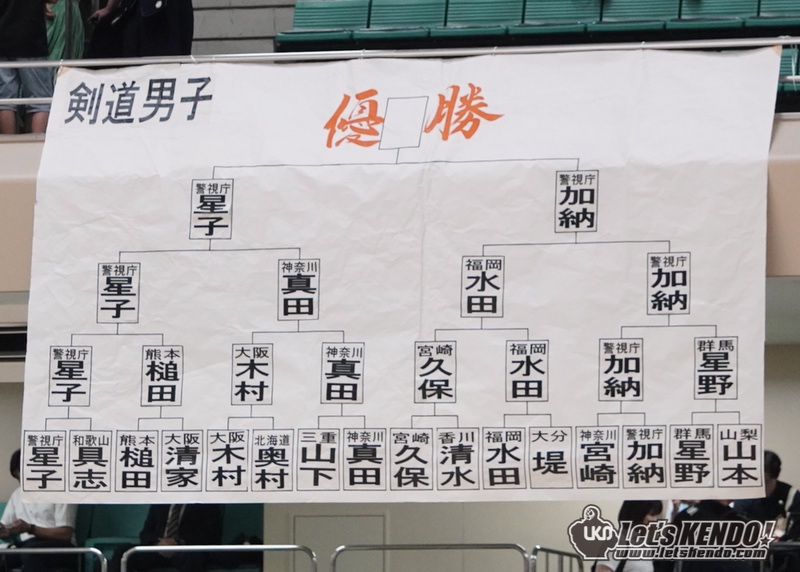 剣道男子
優 勝
警視庁 星子
警視庁 加納
警視庁 星子
神奈川 真田
福岡 水田
警視庁 加納
警視庁 星子
熊本 槌田
大阪 木村
神奈川 真田
宮崎 久保
福岡 水田
警視庁 加納
群馬 星野
警視庁 星子
和歌山 具志
熊本 槌田
大阪 清家
大阪 木村
北海道 奥村
三重 山下
神奈川 真田
宮崎 久保
香川 清水
福岡 水田
大分 堤
神奈川 宮崎
警視庁 加納
群馬 星野
山梨 山本
LKD Let's KENDO!
www.letskendo.com